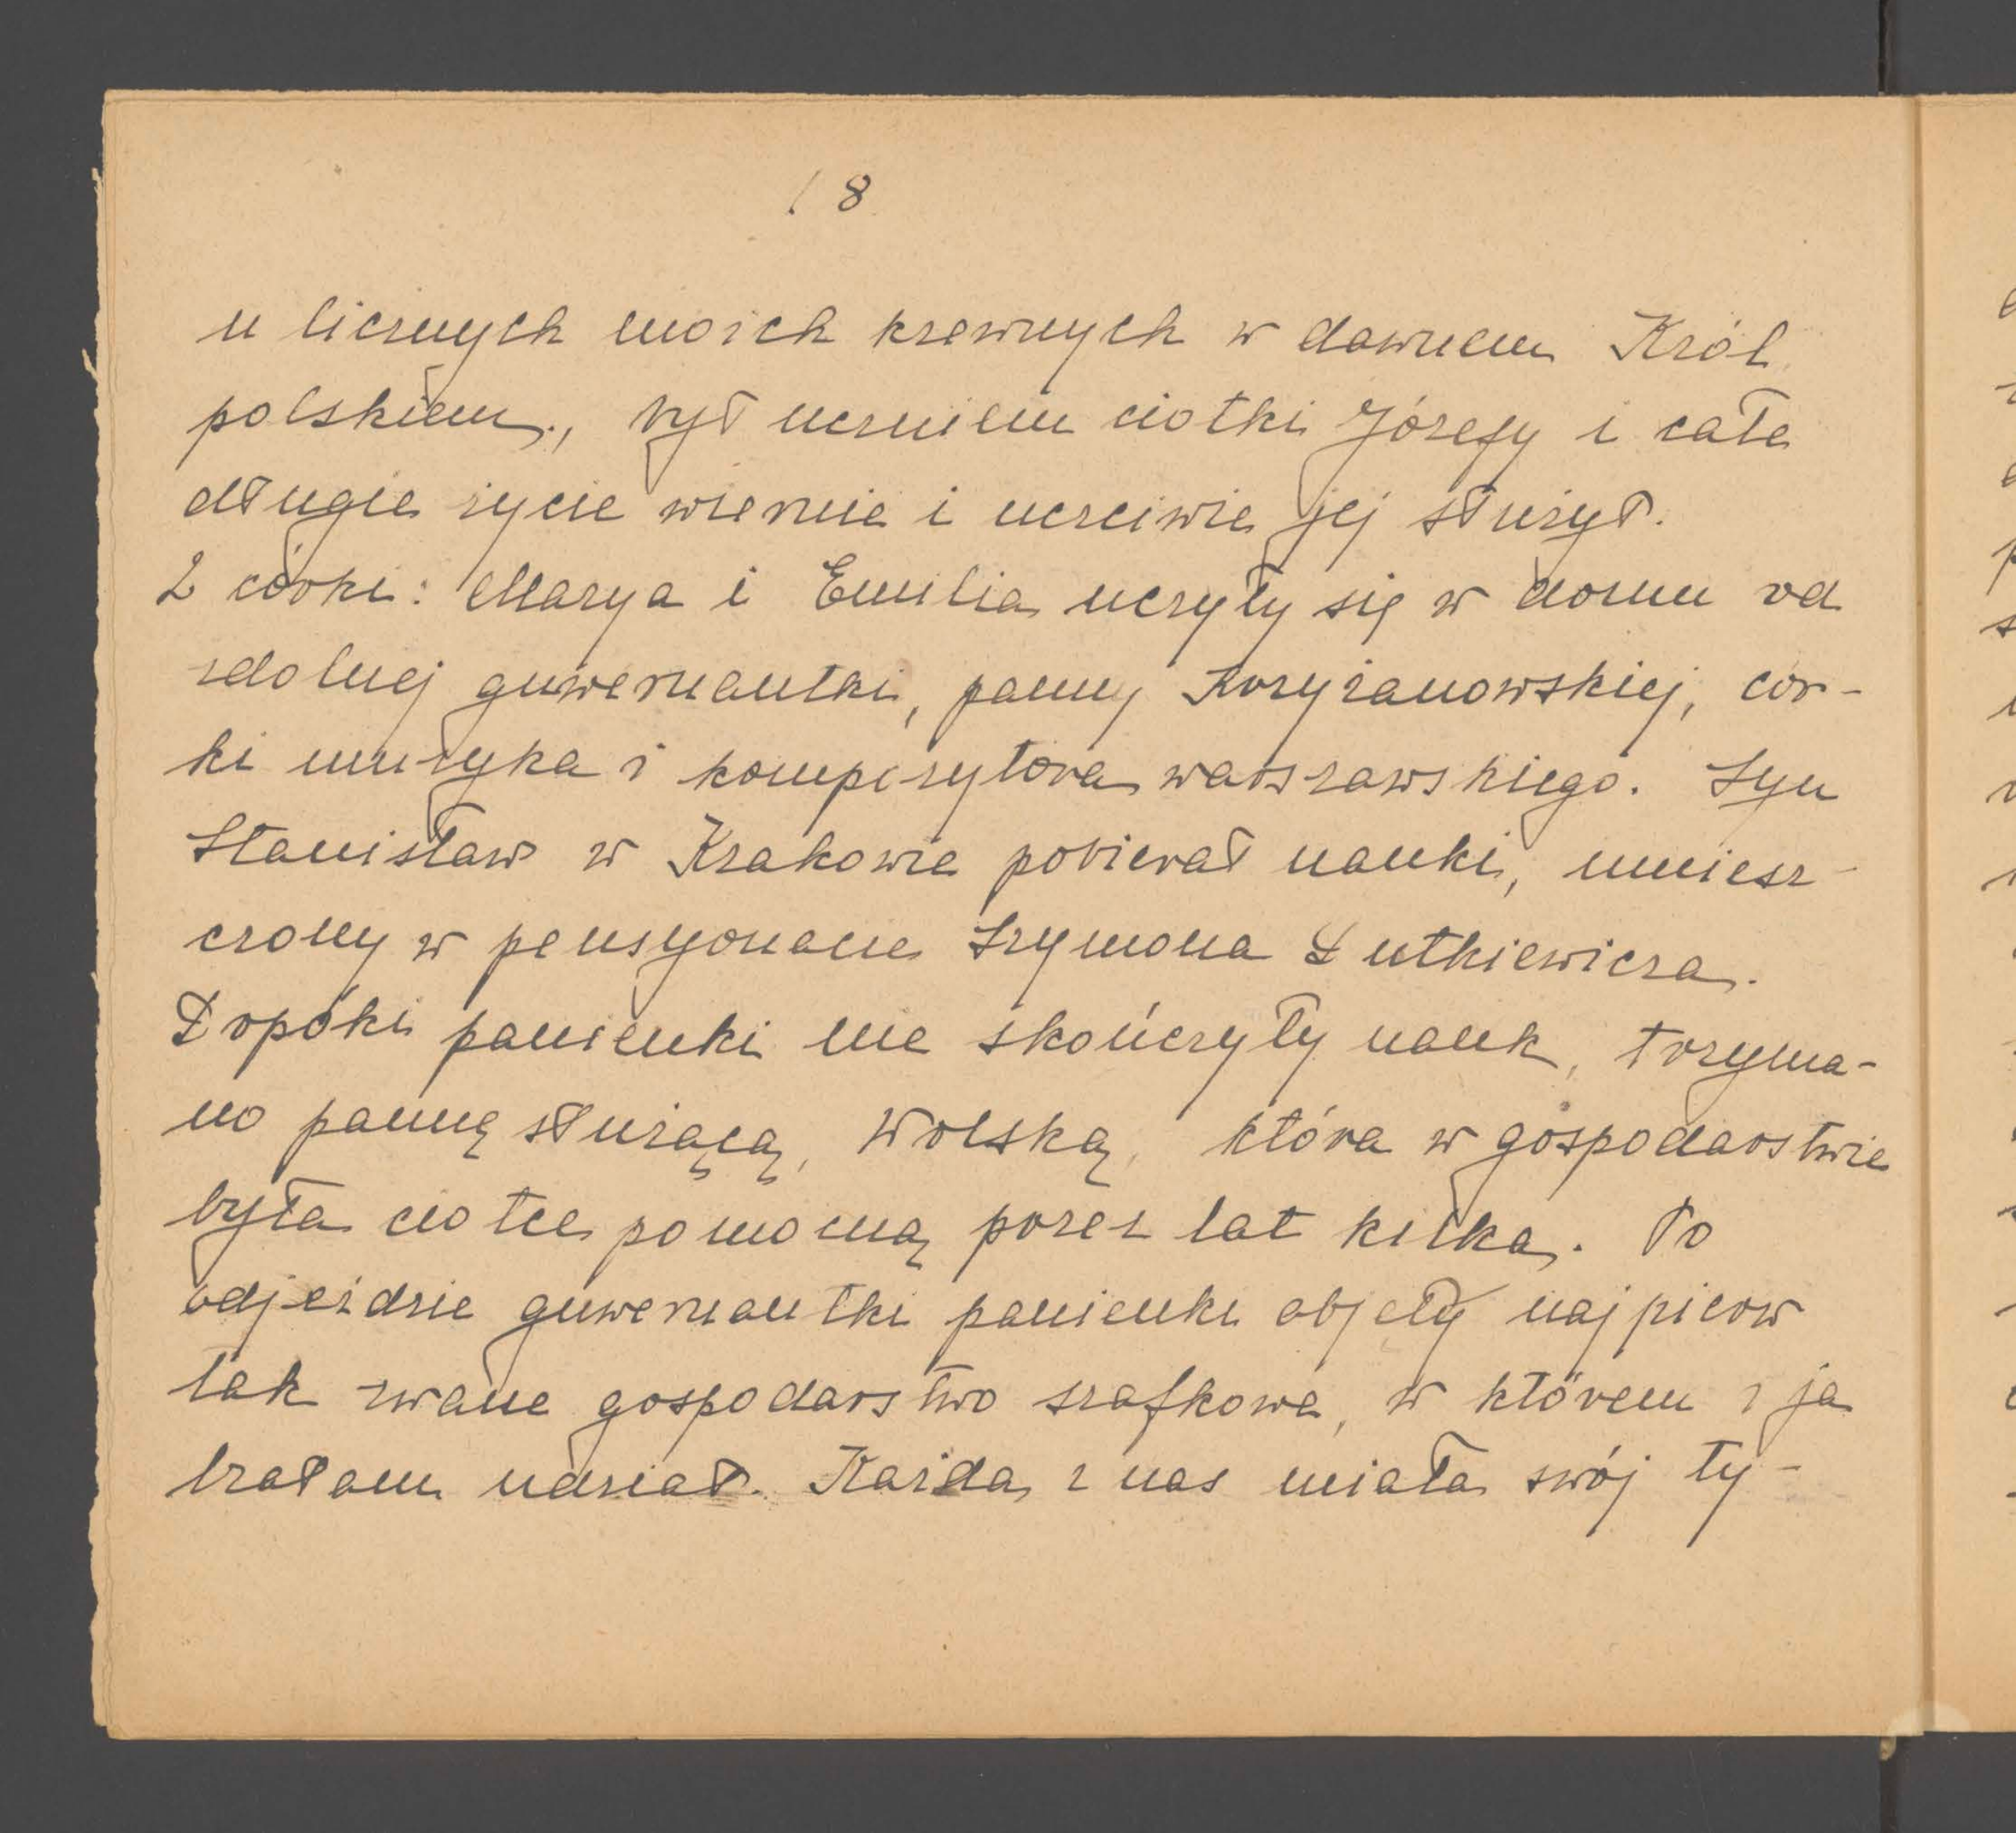 18
u licznych moich krewnych w dawnem Król.
polskiem., był uczniem ciotki Józefy i całe
długie życie wiernie i uczciwie jej służył.
2 córki: Marya i Emilia uczyły się w domu od
zdolnej guwernantki, panny Krzyżanowskiej, cór-
ki muzyka i kompozytora warszawskiego. Syn
Stanisław w Krakowie pobierał nauki, umiesz-
czony w pensyonacie Szymona Łutkiewicza.
Dopóki panienki nie skończyły nauk, trzyma-
no pannę służącą, Wolską, która w gospodarstwie
była ciotce pomocną przez lat kilka. Po
odjeździe guwernantki panienki objęły najpierw
tak zwane gospodarstwo szafkowe, w którem i ja
brałam udział. Każda z nas miała swój ty-